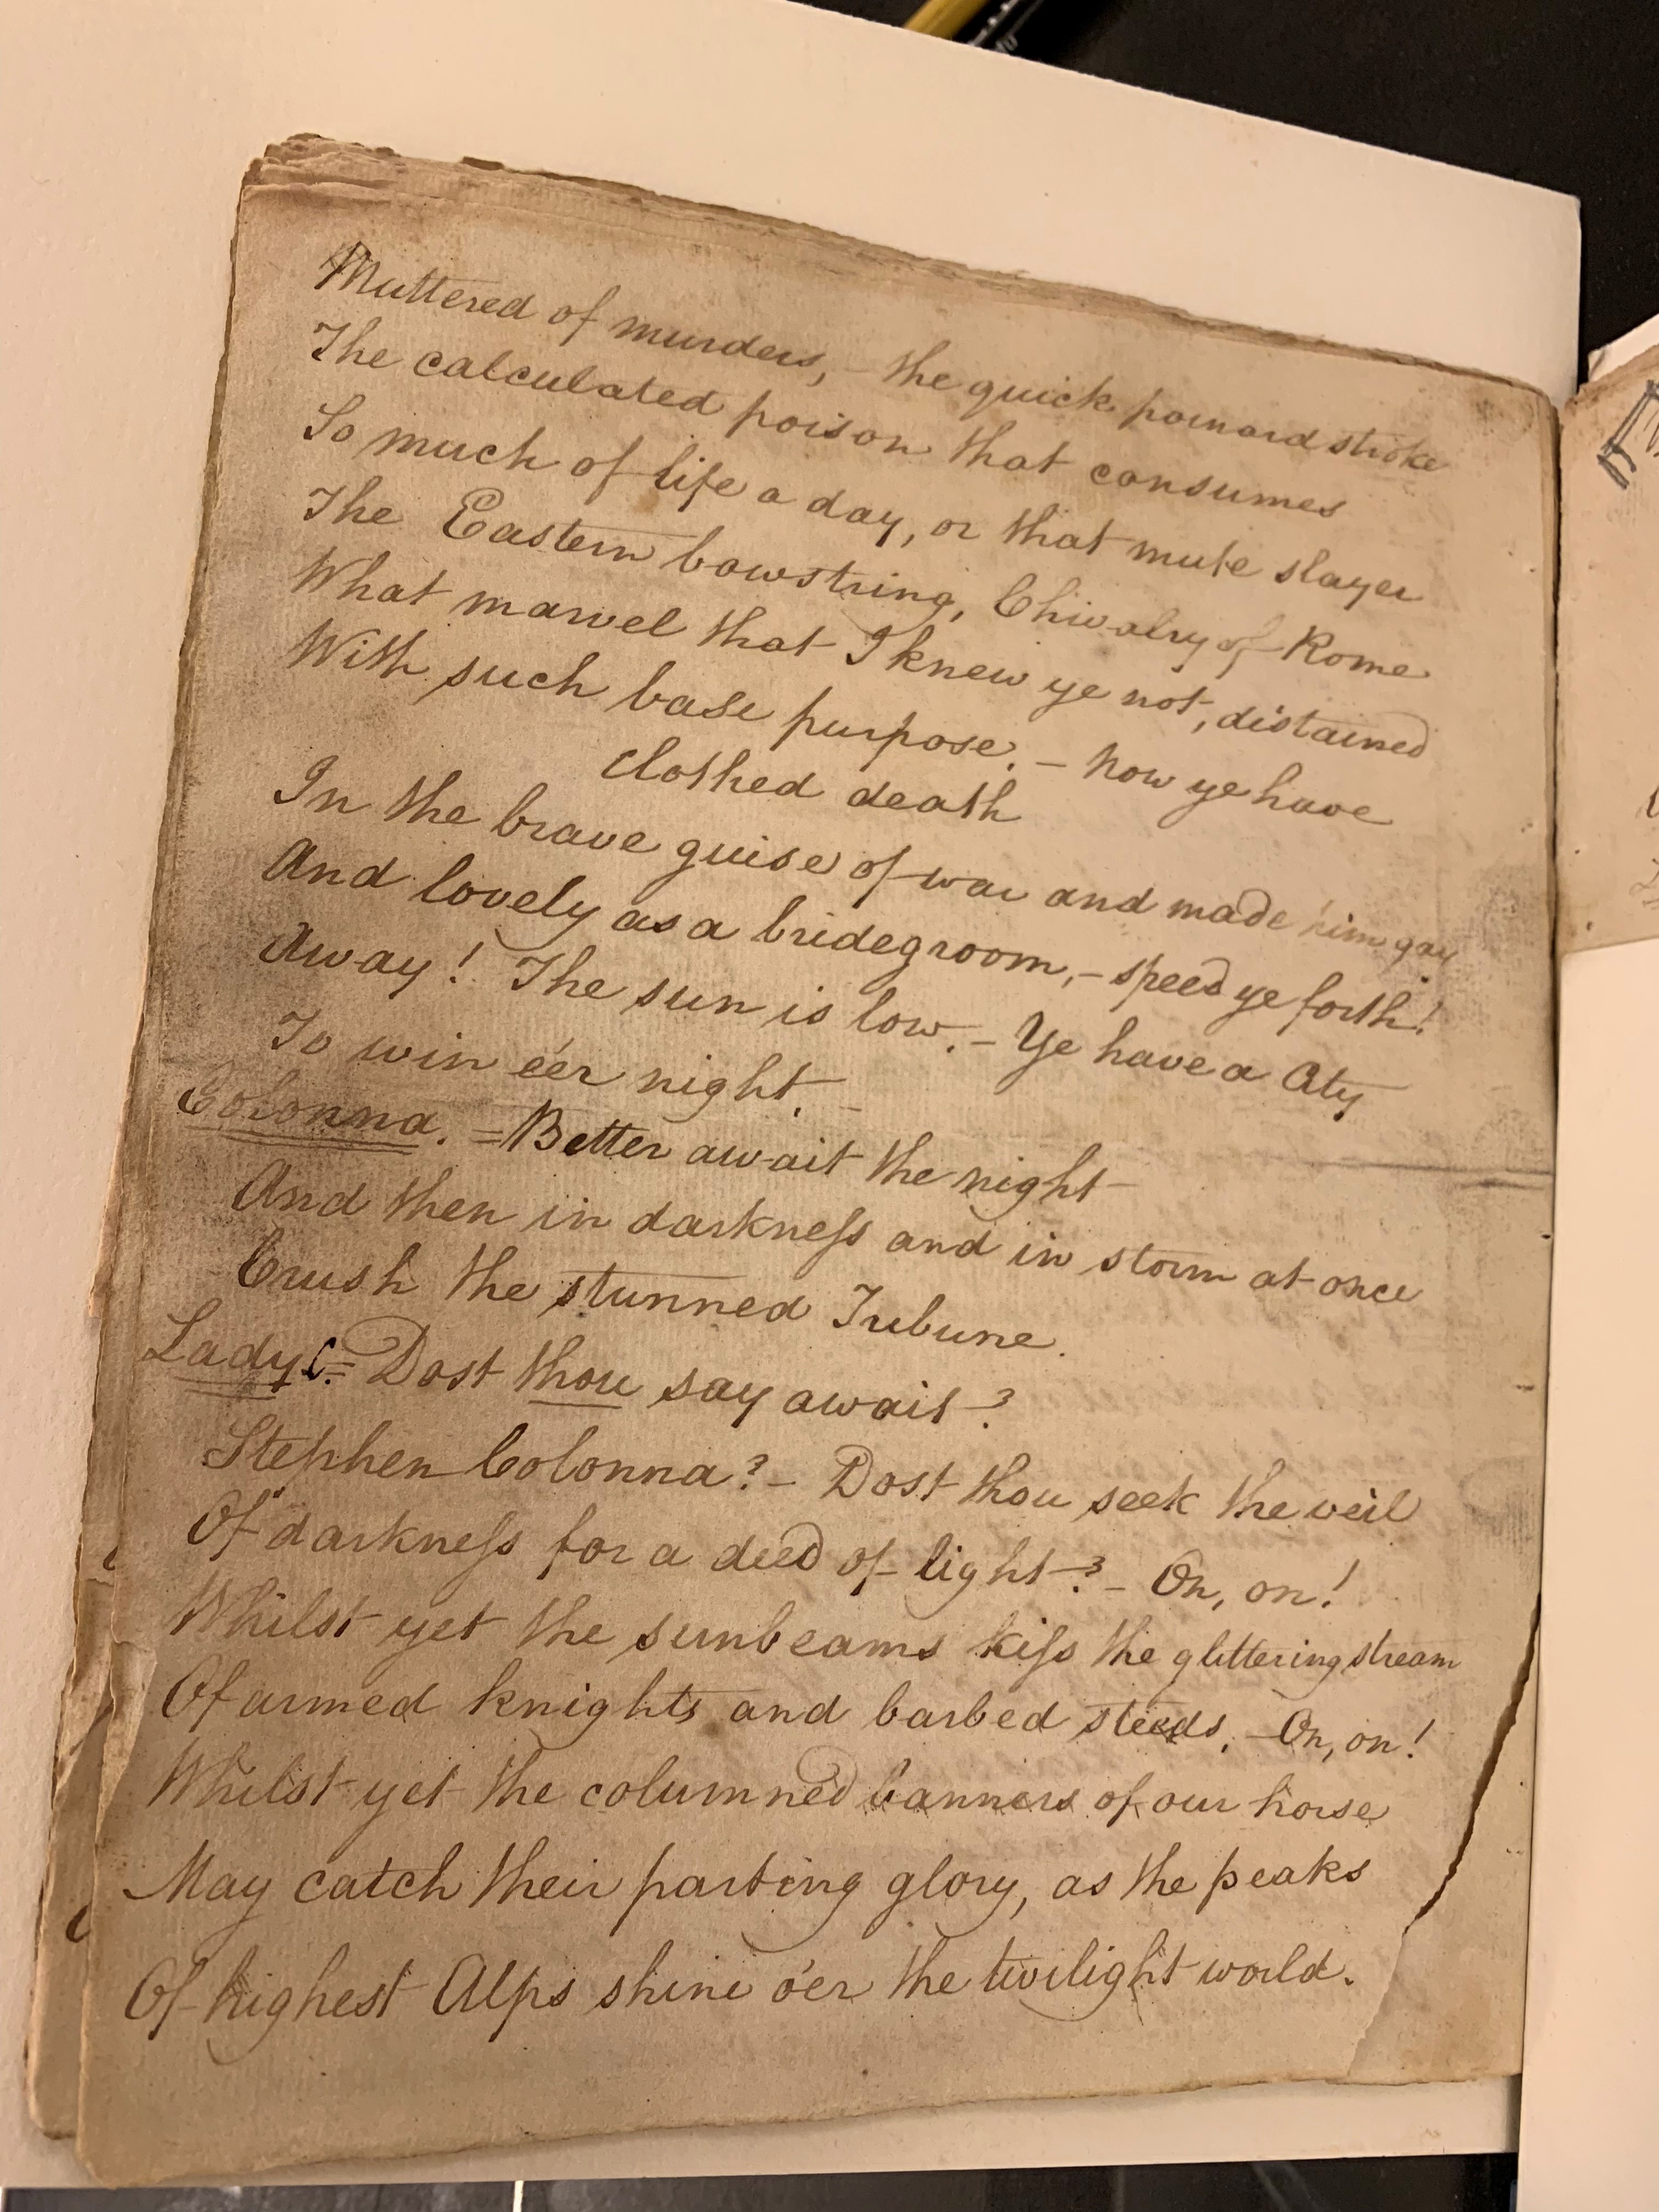 Muttered of murders, – the quick poinard stroke
The calculated poison that consumes
So much of life a day, or that mute slayer
The Eastern bowstring, Chivalry of Rome
What marvel that I knew ye not, distained
With such base purpose. – Now ye have
clothed death
In the brave guise of war and made him gay
And lovely as a bridegroom, – speed ye forth!
Away! The sun is low. – Ye have a City
To win e'er night. –
Colonna. = Better await the night
And then in darkness and in storm at once
Crush the stunned Tribune.
Lady C. = Dost thou say await?
Stephen Colonna? – Dost thou seek the veil
Of darkness for a deed of light? – On, on!
Whilst yet the sunbeams kiss the glittering stream
Of armed knights and barbed steeds. – On, on!
Whilst yet the columned banners of our horse
May catch their parting glory, as the peaks
Of highest Alps shine o'er the twilight world.